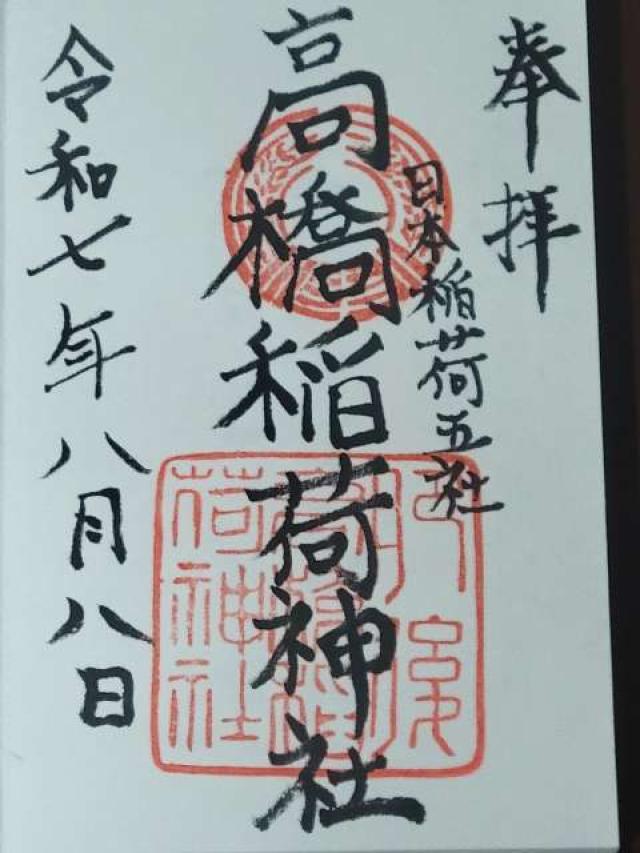 奉拝
日本稲荷五社
高橋稲荷神社
令和七年八月八日